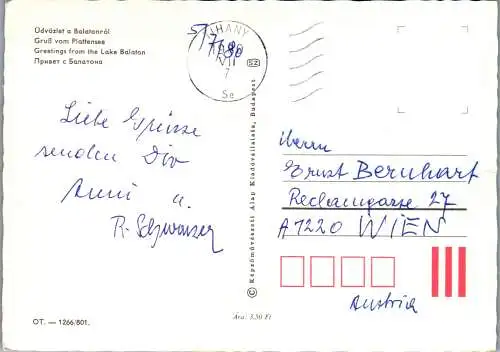 Üdvözlet a Balatonról
Gruß vom Plattensee
Greetings from the Lake Balaton
Привет с Балатона
TIHANY
VII
7
Se
SZ
Liebe Grüsse
senden Dir
Anni u.
R. Schwanzer
© Képzőművészeti Alap Kiadóvállalata, Budapest
Herrn
Ernst Bernhart
27
A 1220 WIEN
Austria
OT. — 1266/801.
Ára: 3,50 Ft